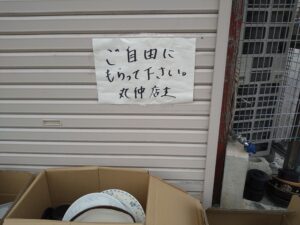 ご自由に
もらって下さい。
丸仲店主